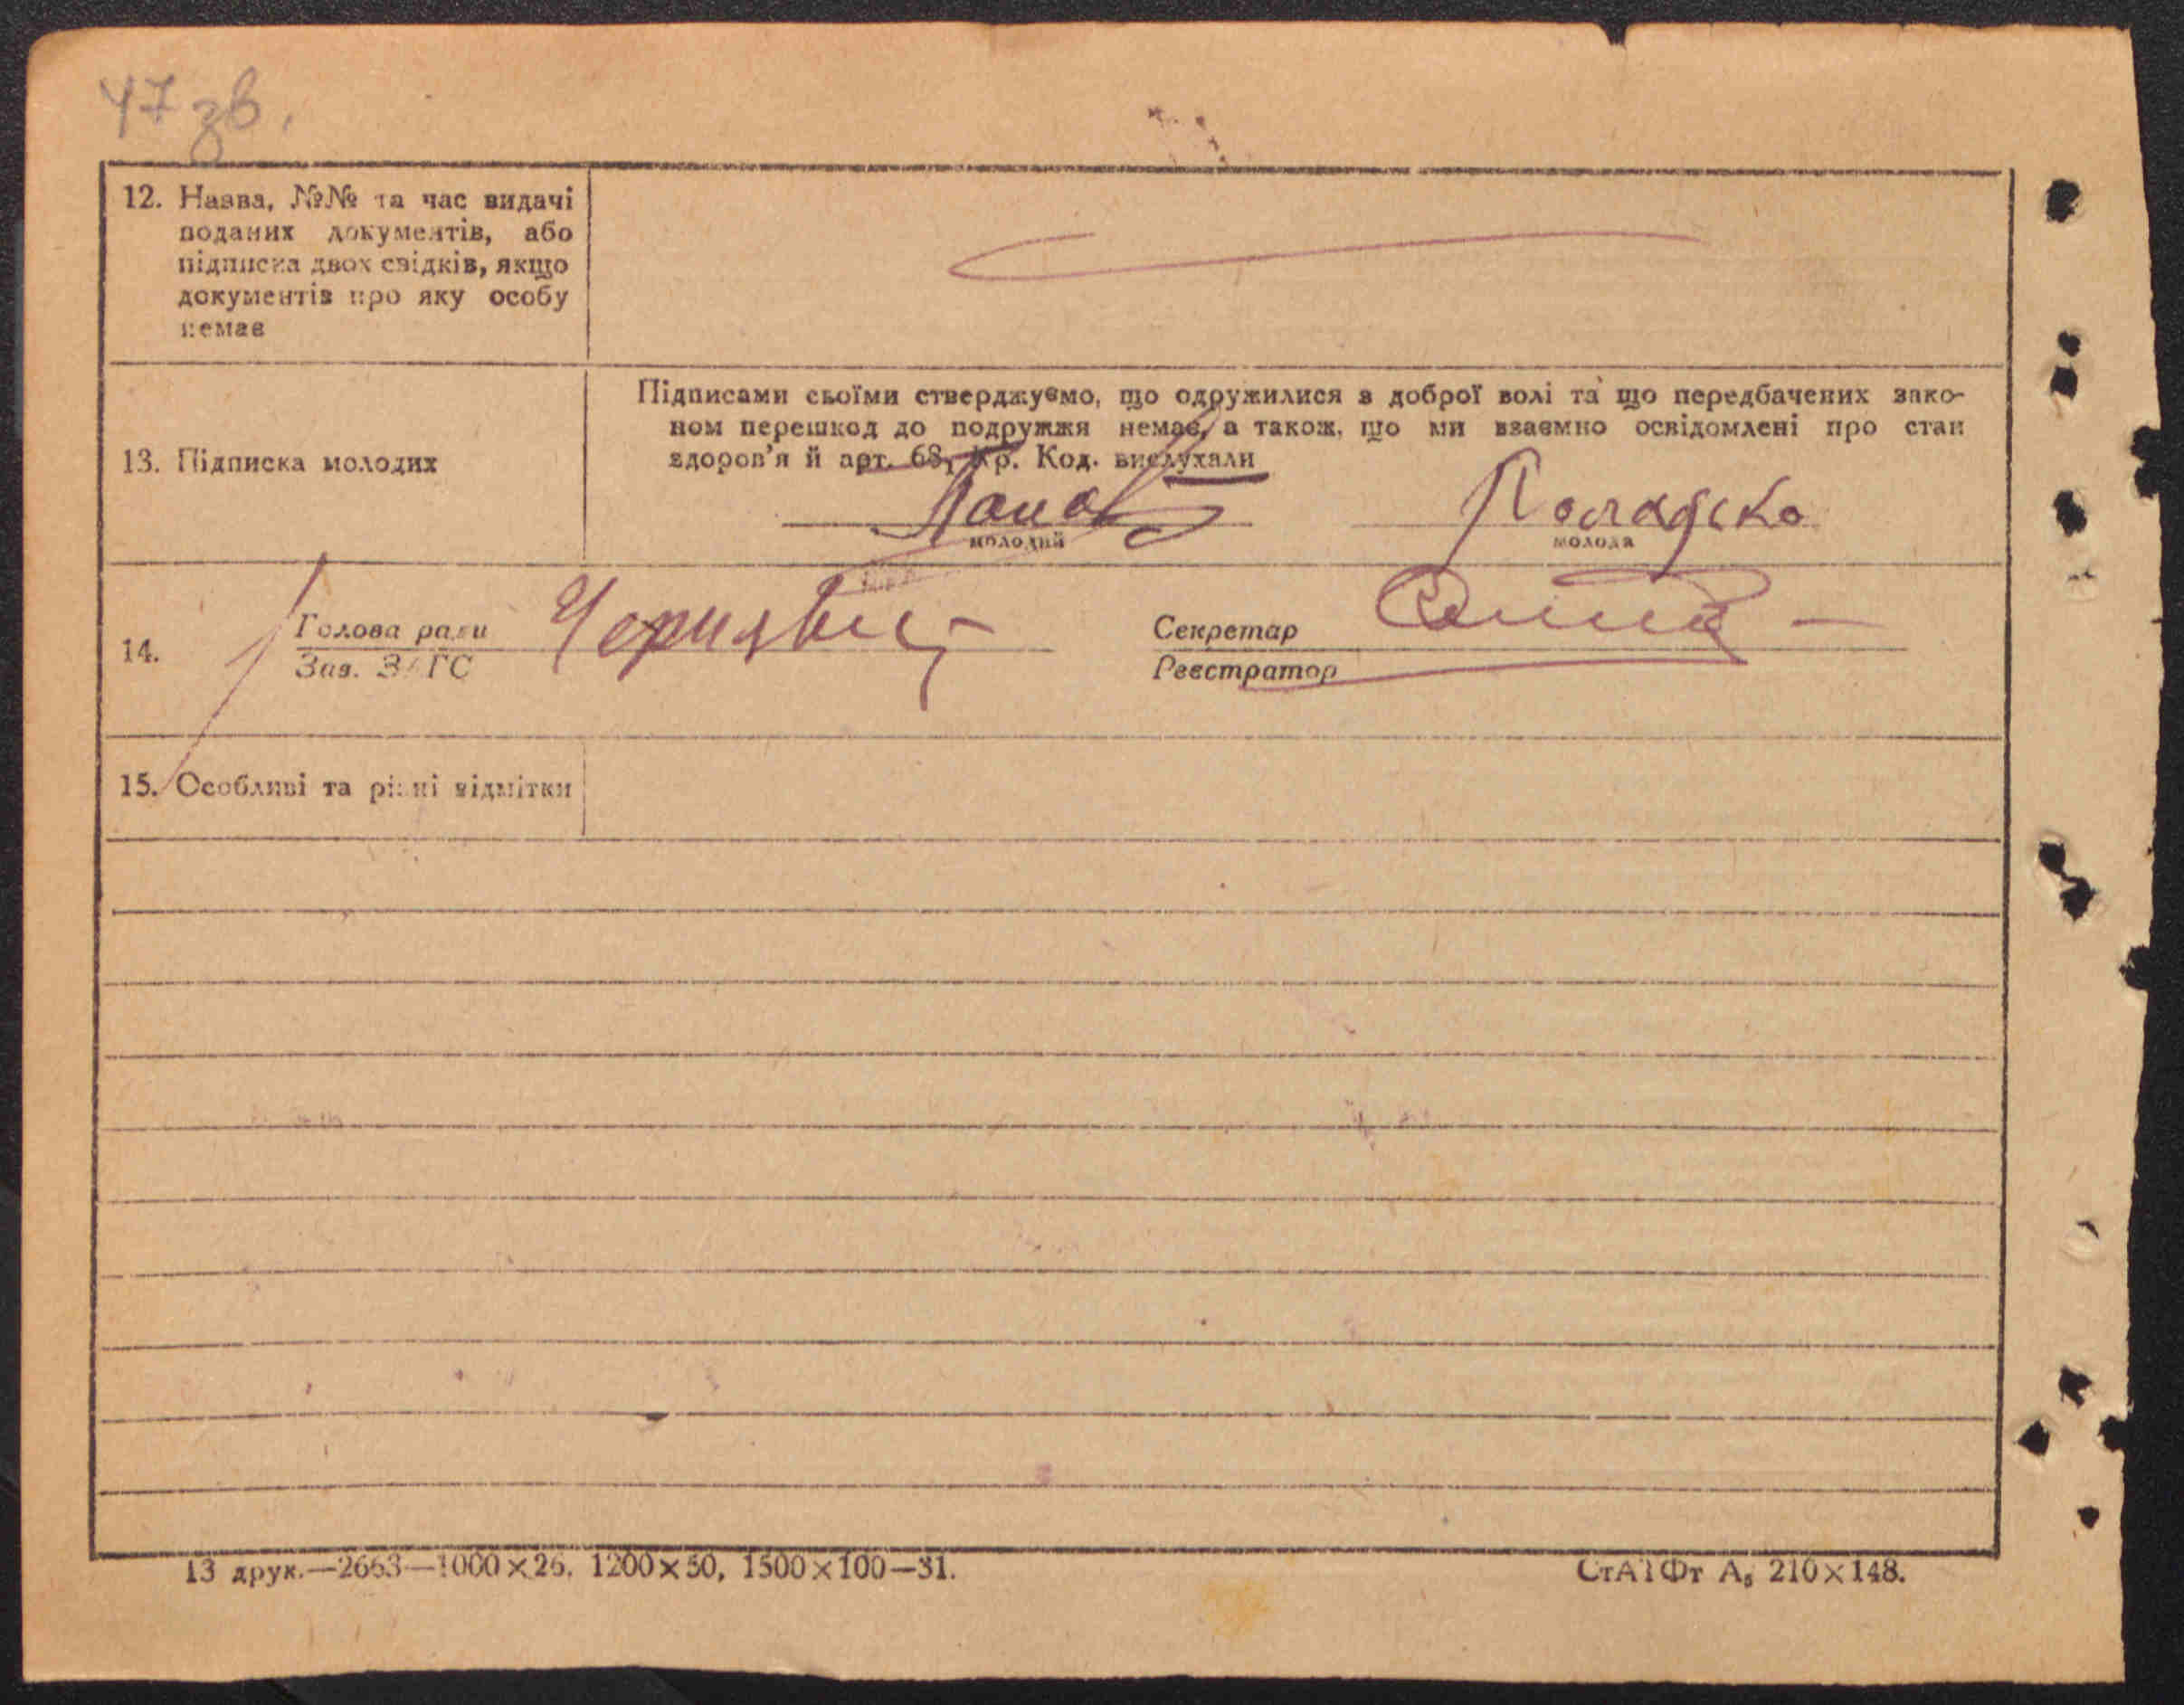 47 зв.
12. Назва, №№ та час видачі
поданих документів, або
підписка двох свідків, якщо
документів про яку особу
немає
13. Підписка молодих
Підписами своїми стверджуємо, що одружилися з доброї волі та що передбачених зако-
ном перешкод до подружжя немає, а також, що ми взаємно освідомлені про стан
здоров'я й арт. 68, Кр. Код. вислухали
молодий
молода
14.
Голова ради
Зав. ЗАГС
Секретар
Реєстратор
15. Особливі та різні відмітки
13 друк.—2663—1000×26, 1200×50, 1500×100—31.
СтАТФт А₅ 210×148.